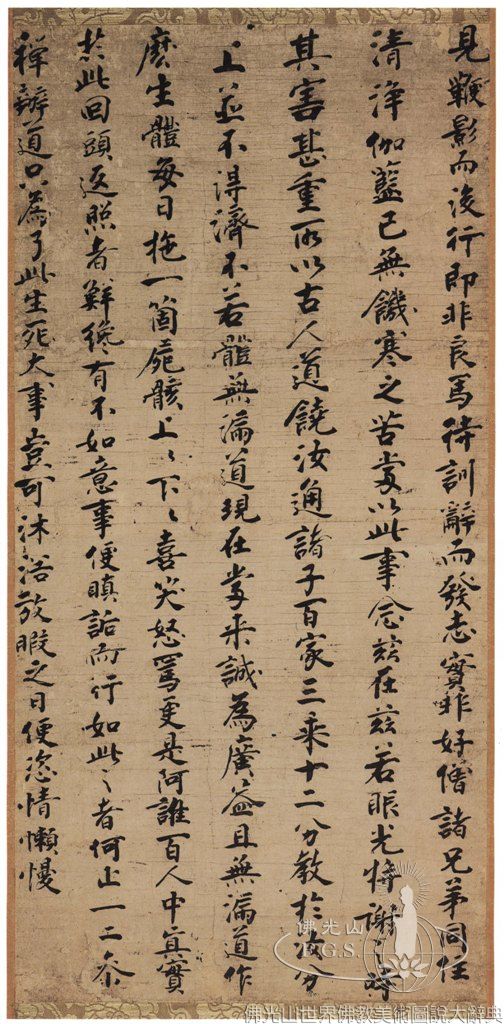 見鞭影而後行即非良馬待訓辭而發志實非好僧諸兄弟同住
清淨伽藍已無饑寒之苦當以此事念茲在茲若眼光將謝之時
其害甚重所以古人道饒汝通諸子百家三乘十二分教於汝分
上並不得濟不若體無漏道現在當來誠為廣益且無漏道作
麼生體每日拖一箇屍骸上々下々喜笑怒罵更是阿誰百人中真實
於此回頭返照者鮮纔有不如意事便瞋詬而行如此之者何止一二參
禪辦道只為了此生死大事豈可沐浴放暇之日便恣情懶慢
佛光山
F.G.S.
佛光山世界佛教美術圖說大辭典